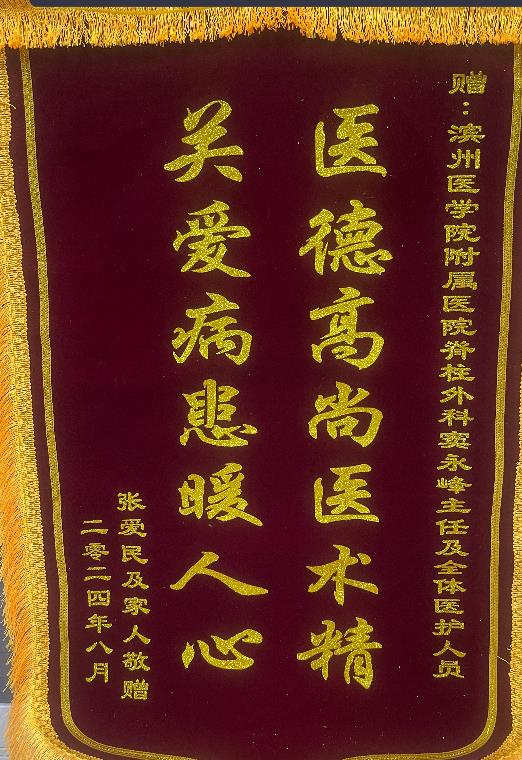 赠：滨州医学院附属医院脊柱外科窦永峰主任及全体医护人员
医德高尚医术精
关爱病患暖人心
张爱民及家人敬赠
二零二四年八月